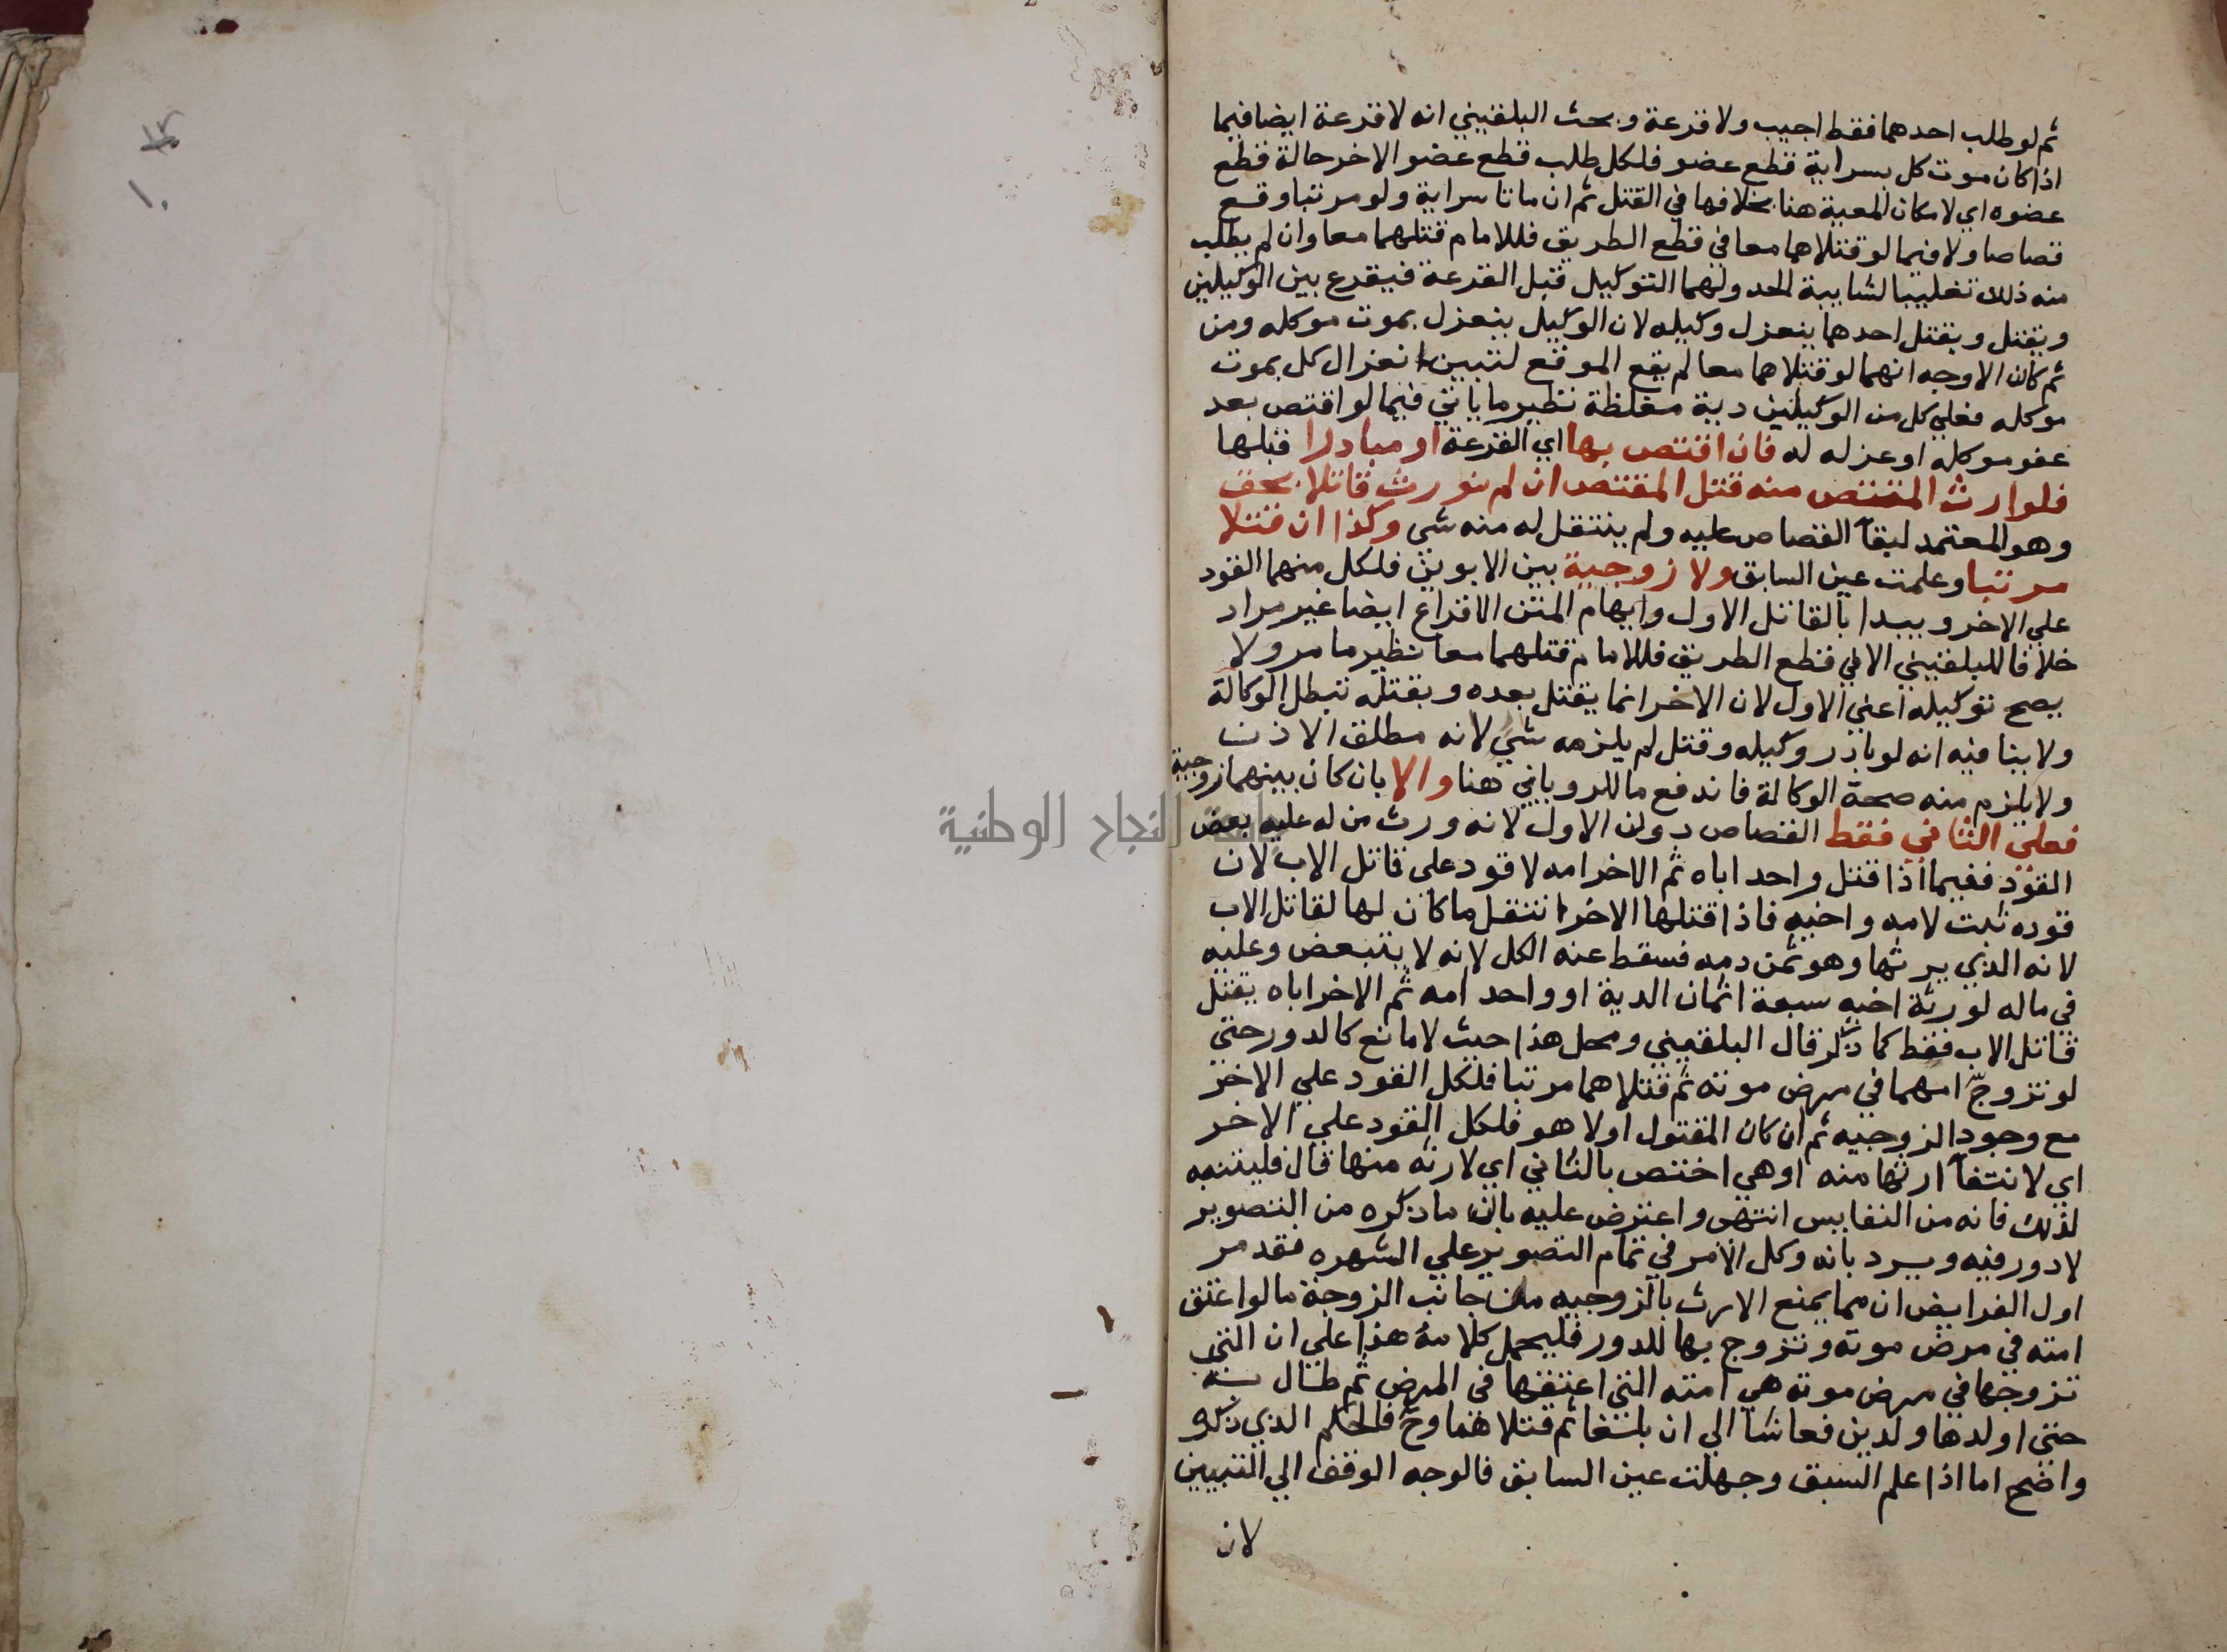 ثم لو طلب احدهما فقط اجيب ولا قرعة وبحث البلقيني انه لا قرعة ايضا فيما
اذا كان موت كل بسراية قطع عضو فلكل طلب قطع عضو الاخر حالة قطع
عضوه اي لامكان المعية هنا بخلافها في القتل ثم ان ماتا سراية ولو مرتبا وقع
قصاصا ولا فيما لو قتلاهما معا في قطع الطريق فللامام قتلهما معا وان لم يطلب
منه ذلك تغليبا لشايبة الحد ولهما التوكيل قبل القرعة فيقرع بين الوكيلين
ويقتل وبقتل احدهما ينعزل وكيله لان الوكيل ينعزل بموت موكله ومن
ثم كان الاوجه انهما لو قتلاهما معا لم يقع الموقع لتبين انعزال كل بموت
موكله فعلي كل من الوكيلين دية مغلظة نظير ما ياتي فيما لو اقتص بعد
عفو موكله او عزله له فان اقتص بها اي القرعة او مبادرا قبلها
فلوارث المقتص منه قتل المقتص ان لم نورث قاتلا بحق
وهو المعتمد لبقآ القصاص عليه ولم ينتقل له منه شي وكذا ان قتلا
مرتبا وعلمت عين السابق ولا زوجية بين الابوين فلكل منهما القود
علي الاخر ويبدا بالقاتل الاول وايهام المتن الاقراع ايضا غير مراد
خلافا للبلقيني الا في قطع الطريق فللامام قتلهما معا نظير ما مر ولا
يصح توكيله اعني الاول لان الاخر انما يقتل بعده وبقتله تبطل الوكالة
ولا ينافيه انه لو بادر وكيله وقتل لم يلزمه شي لانه مطلق الاذن
ولا يلزم منه صحة الوكالة فاندفع ما للروياني هنا والا بان كان بينهما زوجية
فعلي الثاني فقط القصاص دون الاول لانه ورث من له عليه بعض
القود ففيما اذا قتل واحد اباه ثم الاخر امه لا قود على قاتل الاب لان
قوده ثبت لامه واخيه فاذا قتلها الاخر انتقل ما كان لها لقاتل الاب
لانه الذي يرثها وهو ثمن دمه فسقط عنه الكل لانه لا يتبعض وعليه
في ماله لورثة اخيه سبعة اثمان الدية او واحد امه ثم الاخر اباه يقتل
قاتل الاب فقط كما ذكر قال البلقيني ومحل هذا حيث لا مانع كالدور حتي
لو تزوج امهما في مرض موته ثم قتلاهما مرتبا فلكل القود علي الاخر
مع وجود الزوجيه ثم ان كان المقتول اولا هو فلكل القود علي الاخر
اي لانتفآ ارثها منه او هي اختص بالثاني اي لارثه منها قال فليتنبه
لذلك فانه من النفايس انتهى واعترض عليه بان ما ذكره من التصوير
لا دور فيه ويرد بانه وكل الامر في تمام التصوير علي الشهره فقد مر
اول الفرايض ان مما يمنع الارث بالزوجيه من جانب الزوجة ما لو اعتق
امته في مرض موته وتزوج بها للدور فليحمل كلامه هذا علي ان التي
تزوجها في مرض موته هي امته التي اعتقها في المرض ثم طال به
حتي اولدها ولدين فعاشا الي ان بلغا ثم قتلاهما وح فالحكم الذي ذكره
واضح اما اذا علم السبق وجهلت عين السابق فالوجه الوقف الي التبيين
لان
جامعة النجاح الوطنية
١٠